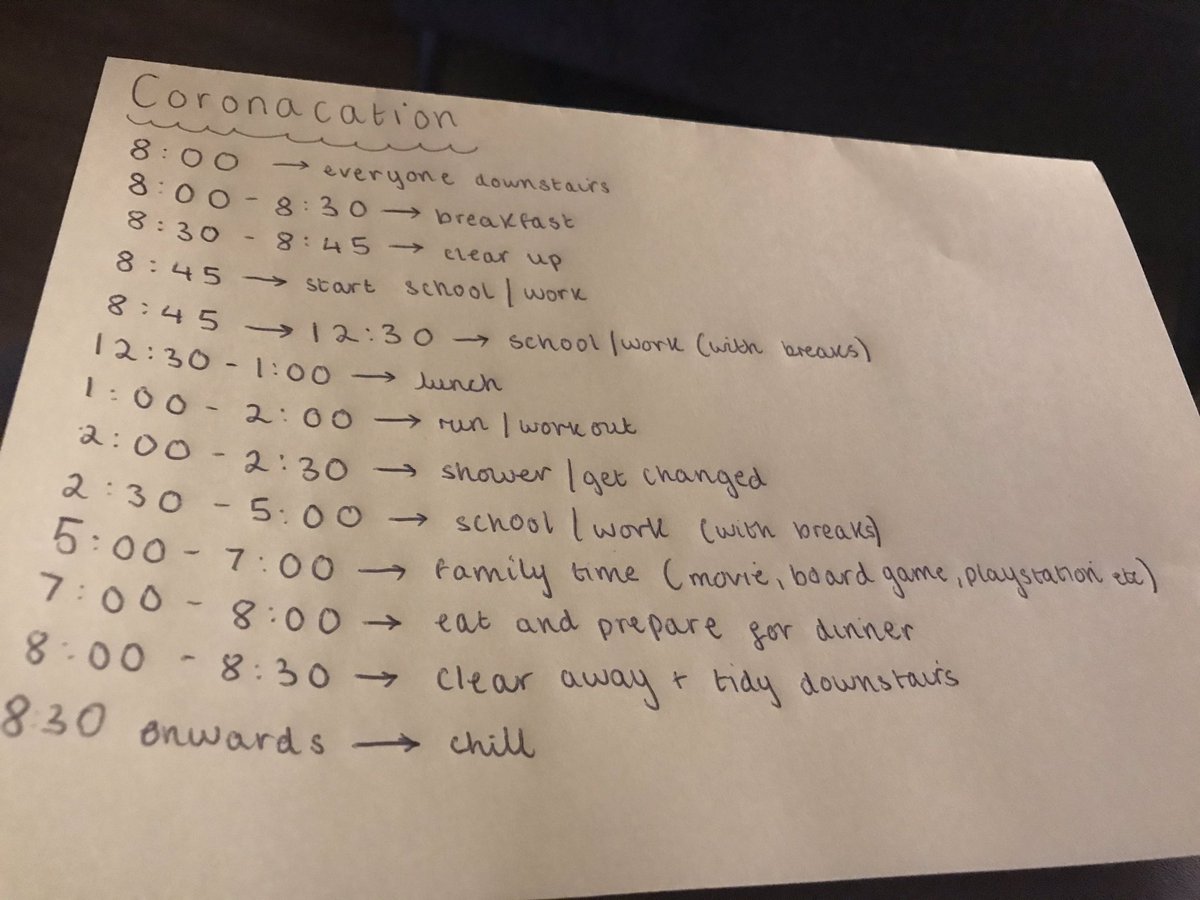 Coronacation
8:00 → everyone downstairs
8:00 - 8:30 → breakfast
8:30 - 8:45 → clear up
8:45 → start school/work
8:45 → 12:30 → school/work (with breaks)
12:30 - 1:00 → lunch
1:00 - 2:00 → run/workout
2:00 - 2:30 → shower/get changed
2:30 - 5:00 → school/work (with breaks)
5:00 - 7:00 → family time (movie, board game, playstation etc)
7:00 - 8:00 → eat and prepare for dinner
8:00 - 8:30 → clear away + tidy downstairs
8:30 onwards → chill